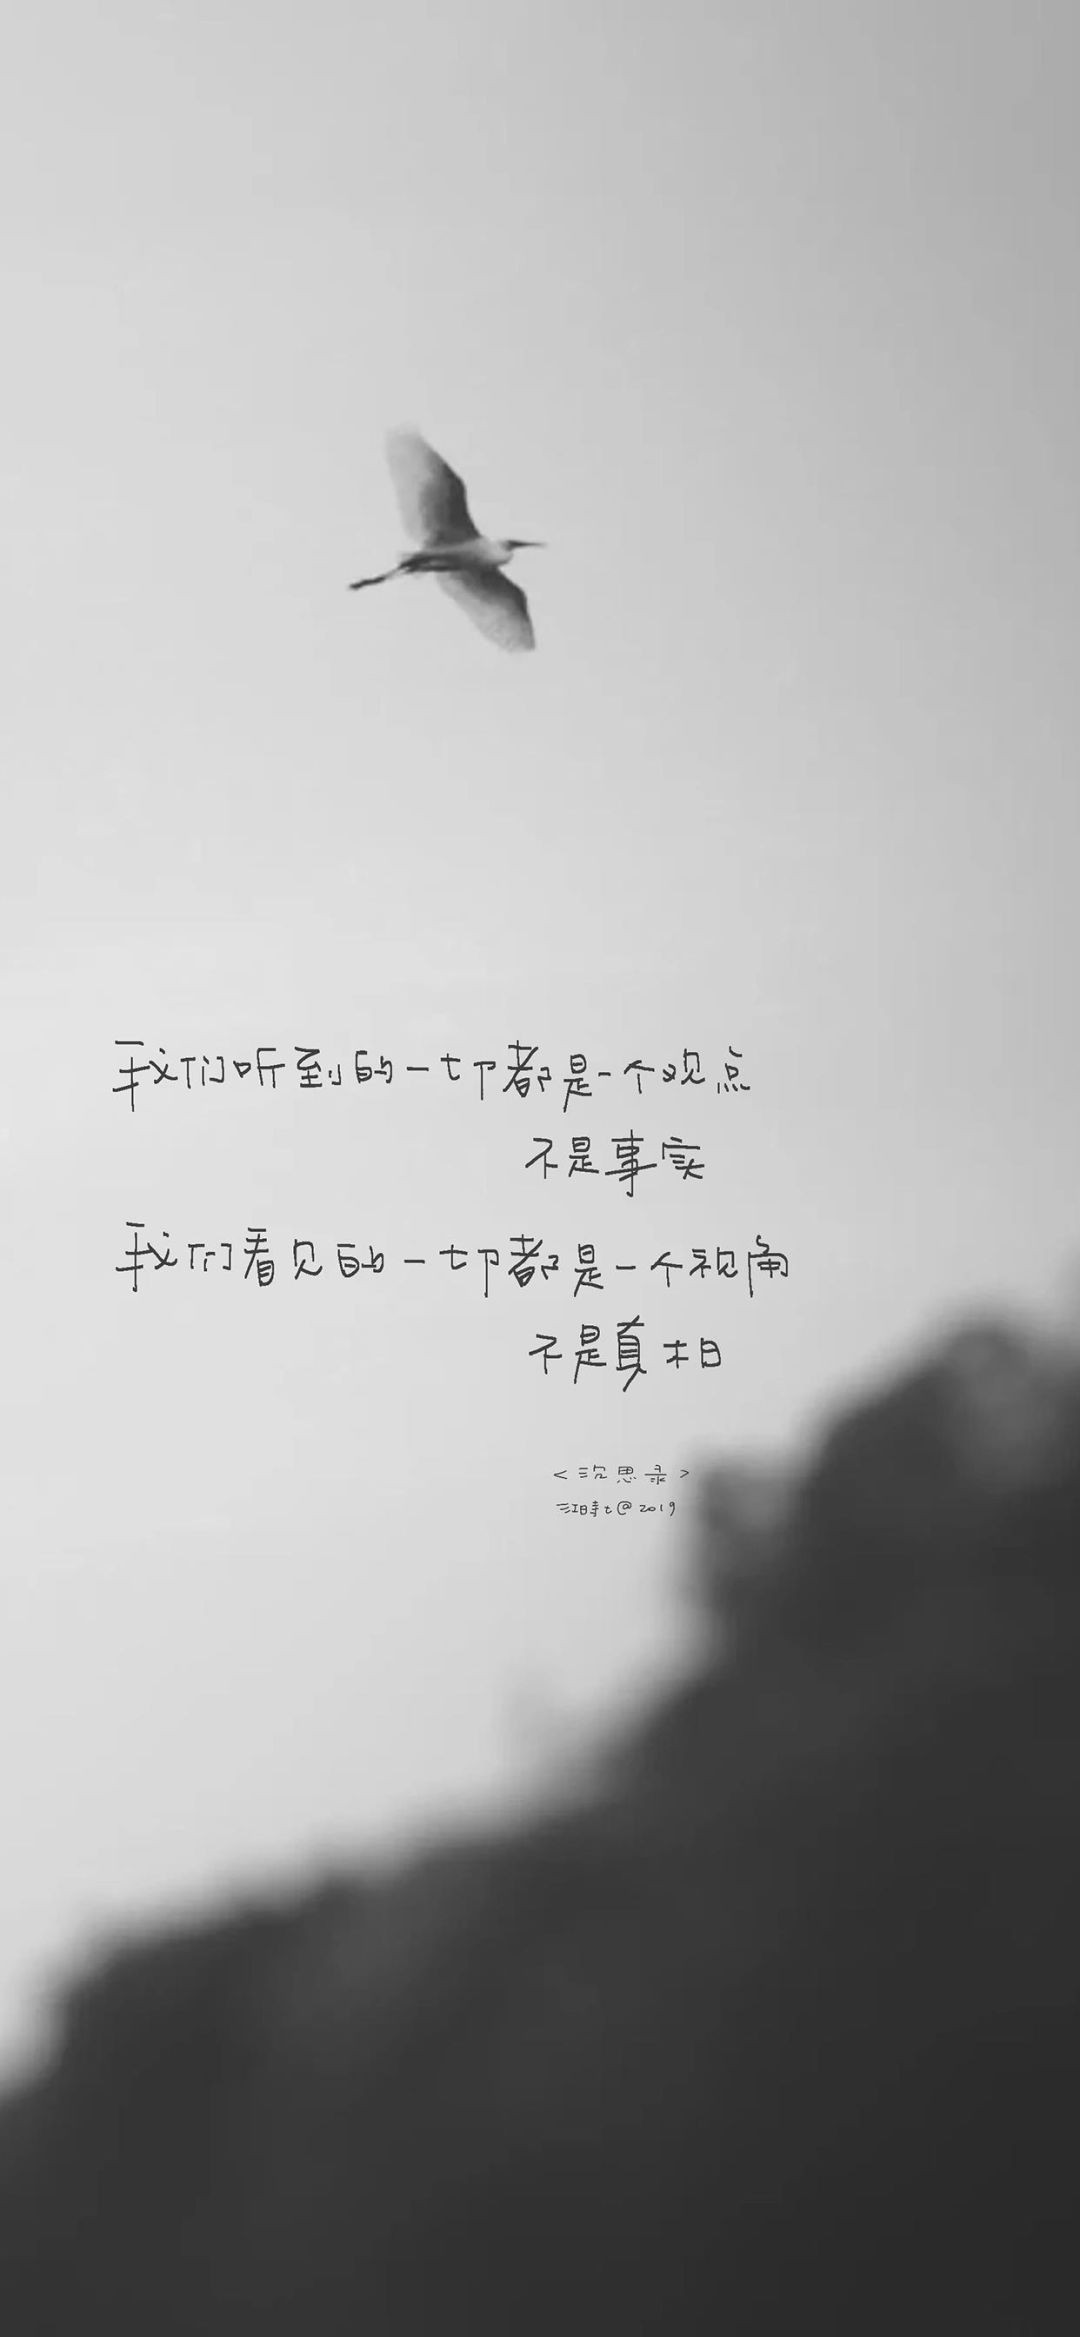 我们听到的一切都是一个观点
不是事实
我们看见的一切都是一个视角
不是真相
<沉思录>
@2019